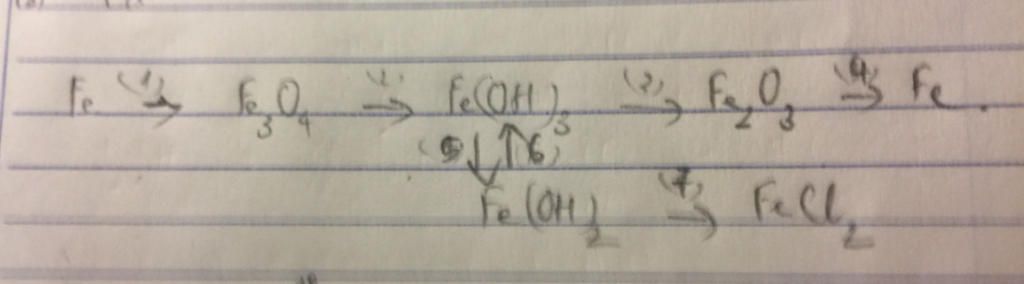 Fe (1)→ Fe₃O₄ (2)→ Fe(OH)₃ (3)→ Fe₂O₃ (4)→ Fe.
(5)↓ ↑(6)
Fe(OH)₂ (7)→ FeCl₂